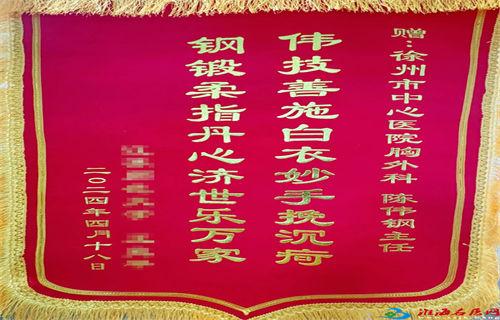 赠：徐州市中心医院胸外科 陈伟钢主任
伟技善施白衣妙手挽沉疴
钢锻柔指丹心济世乐万家
二〇二四年四月十八日
淮海名医网